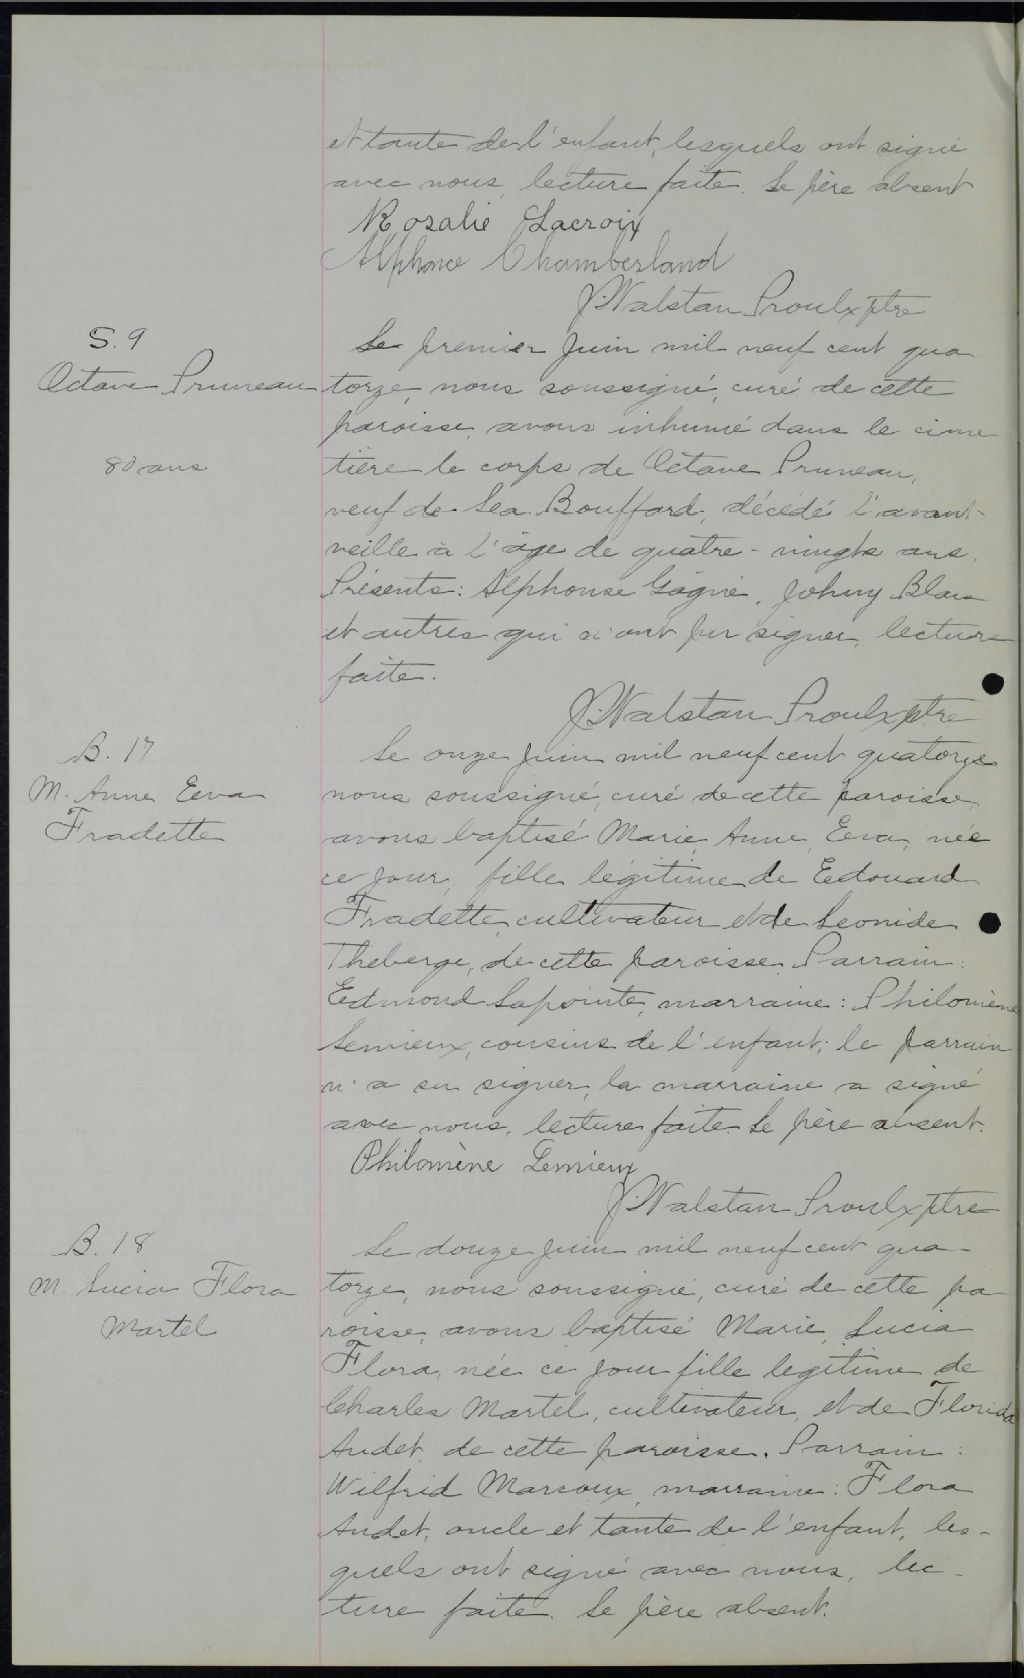 et tante de l'enfant, lesquels ont signé
avec nous, lecture faite. Le père absent
Rosalie Lacroix
Alphonse Chamberland
J. Walstan Proulx ptre
S. 9
Octave Pruneau
80 ans
Le premier Juin mil neuf cent qua
torze, nous soussigné, curé de cette
paroisse, avons inhumé dans le cime
tière le corps de Octave Pruneau,
veuf de Lea Bouffard, décédé l'avant-
veille à l'âge de quatre-vingts ans.
Présents: Alphonse Gagné, Johny Blais
et autres qui n'ont pu signer, lecture
faite.
J. Walstan Proulx ptre
B. 17
M. Anne Eeva
Fradette
Le onze Juin mil neuf cent quatorze
nous soussigné, curé de cette paroisse
avons baptisé Marie, Anne, Eeva, née
ce jour, fille légitime de Eedouard
Fradette, cultivateur et de Leonide
Theberge, de cette paroisse. Parrain:
Eedmond Lapointe, marraine: Philomène
Lemieux, cousins de l'enfant; le parrain
n'a su signer, la marraine a signé
avec nous, lecture faite. Le père absent.
Philomène Lemieux
J. Walstan Proulx ptre
B. 18
M. Lucia Flora
Martel
Le douze Juin mil neuf cent qua-
torze, nous soussigné, curé de cette pa
roisse, avons baptisé Marie, Lucia
Flora, née ce jour fille legitime de
Charles Martel, cultivateur, et de Florida
Audet, de cette paroisse. Parrain:
Wilfrid Marcoux, marraine: Flora
Audet, oncle et tante de l'enfant, les-
quels ont signé avec nous, lec-
ture faite. Le père absent.